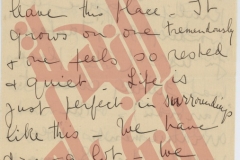 leave this place. It
grows on one tremendously
& one feels so rested
& quiet. Life is
just perfect in surroundings
like this - We have
lot - We